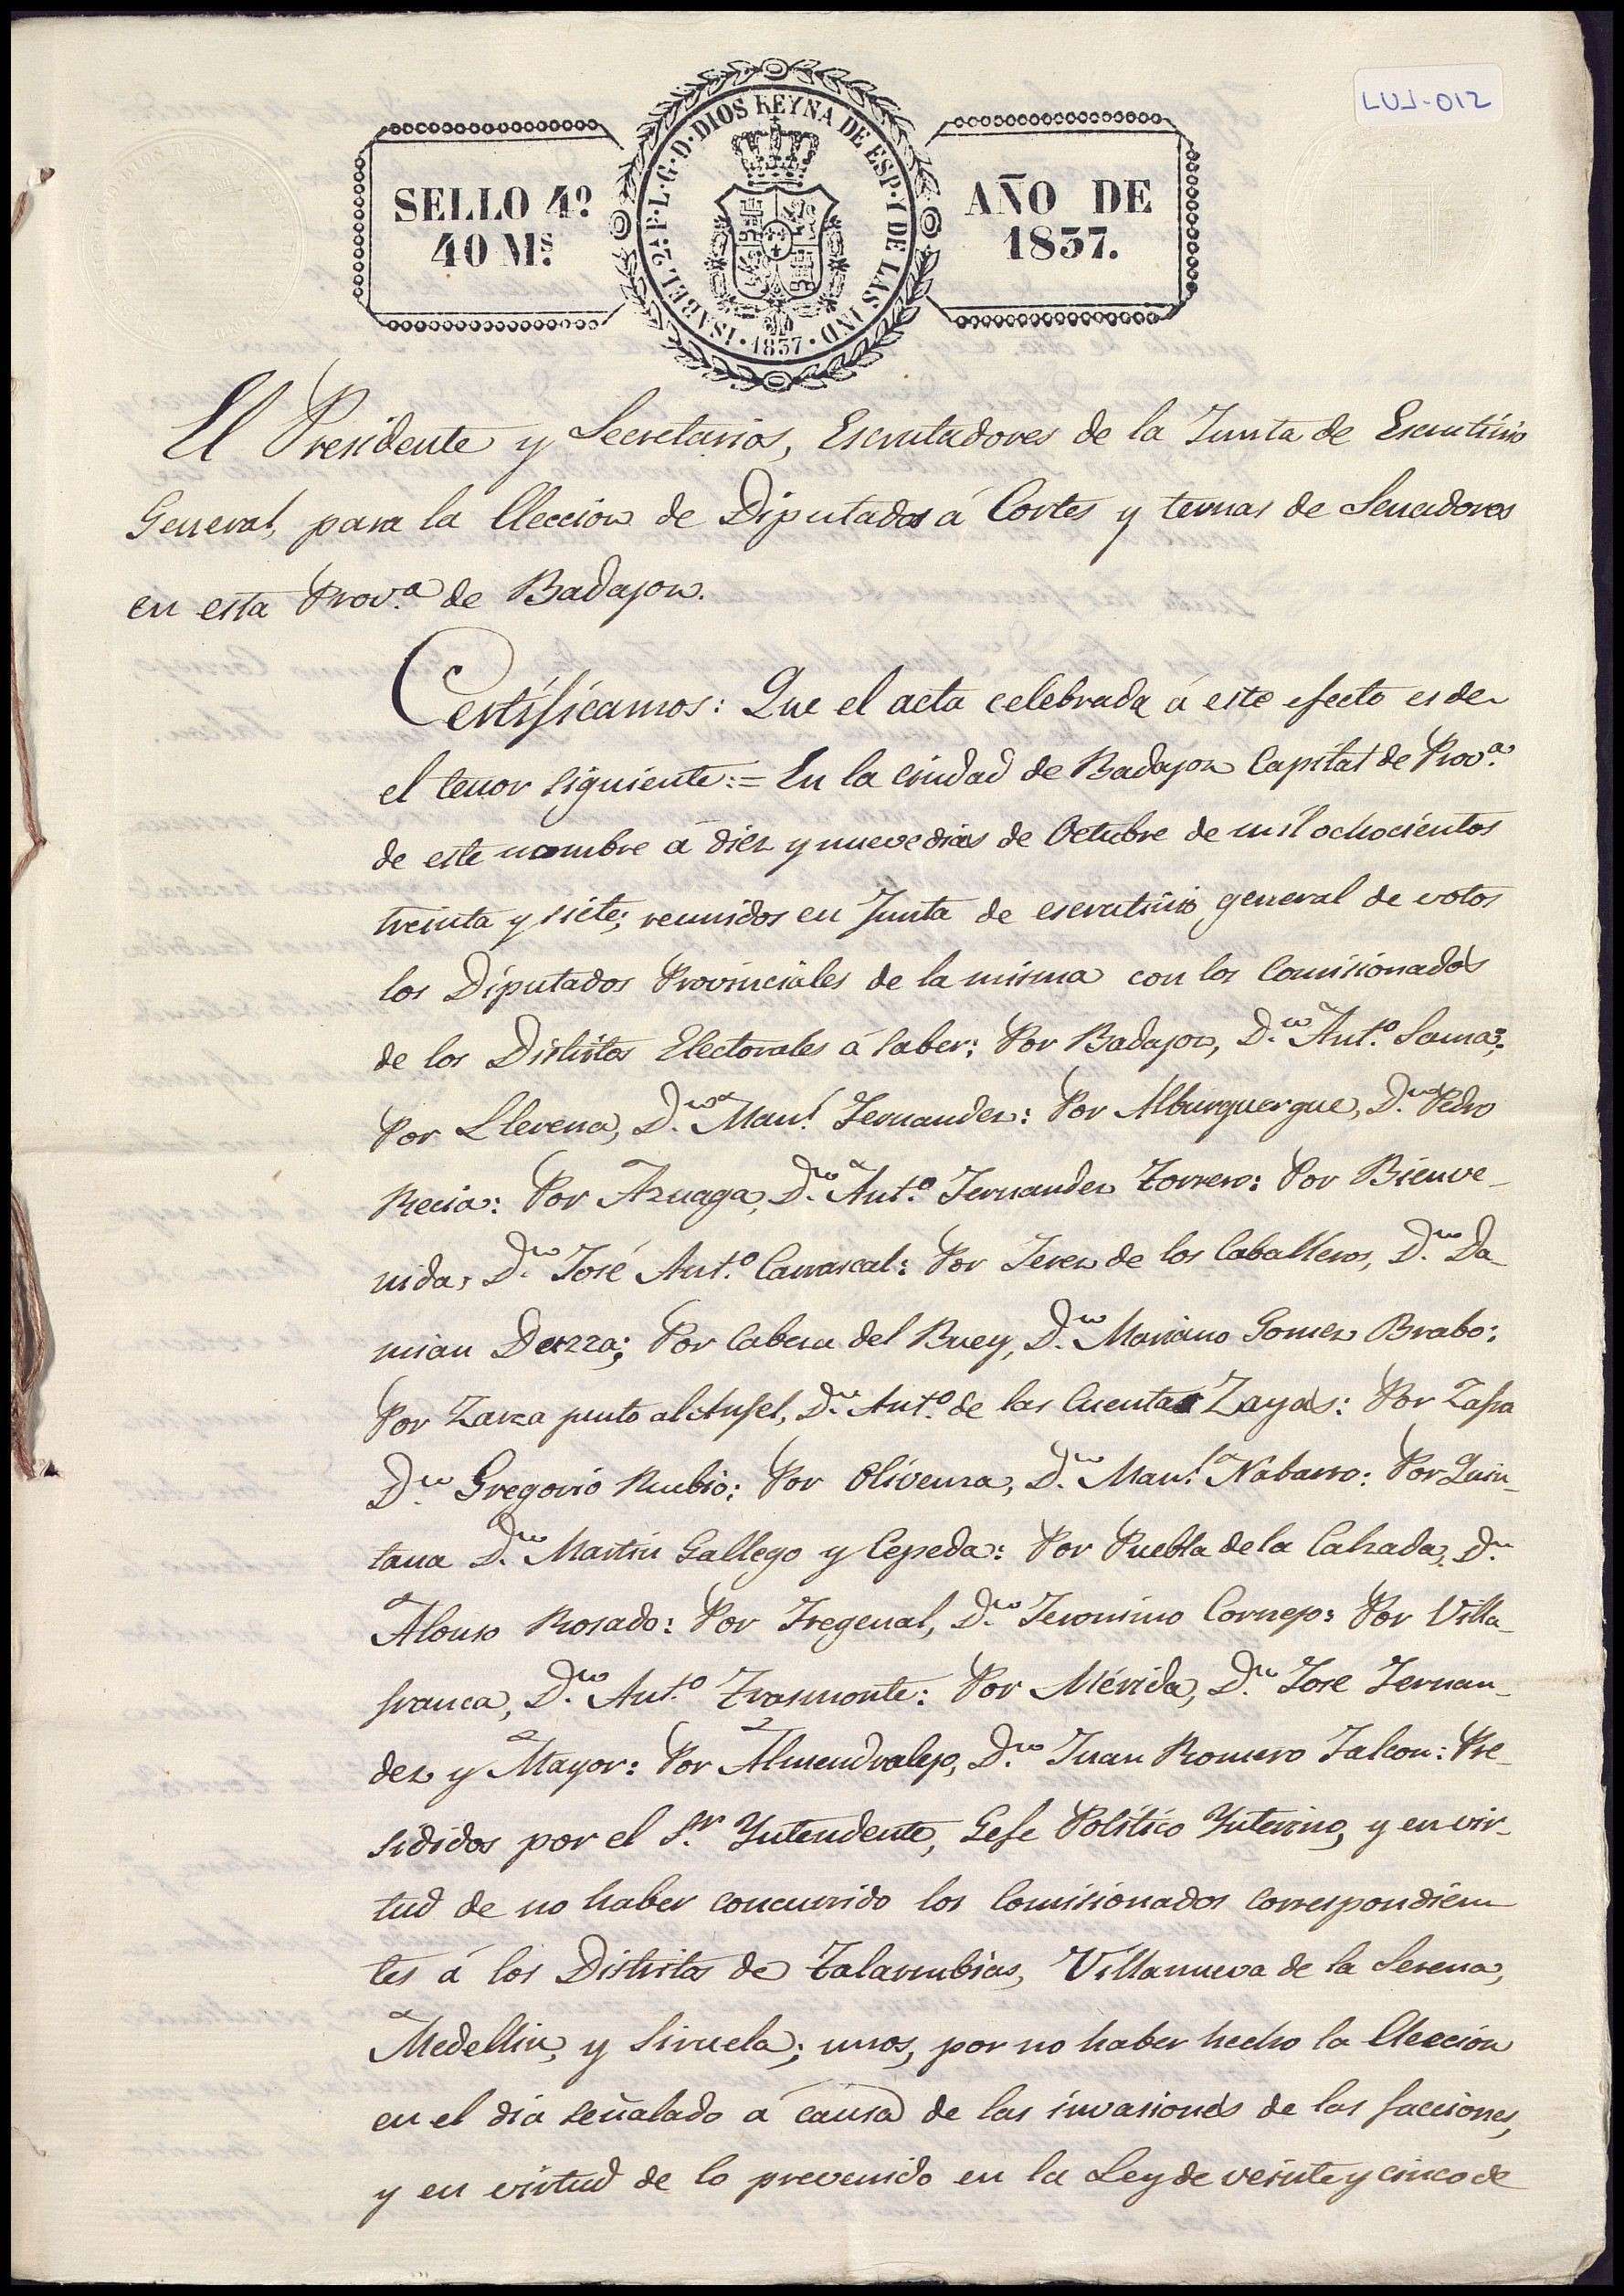 LUJ-012
SELLO 4º
40 Ms.
ISABEL 2ª P. L. G. D. DIOS REYNA DE ESP. Y DE LAS IND.
· 1837 ·
AÑO DE
1837.
El Presidente y Secretarios, Escrutadores de la Junta de Escrutinio
General, para la Eleccion de Diputados á Cortes y ternas de Senadores
en esta Prov.ª de Badajoz.
Certificamos: Que el acta celebrada á este efecto es de
el tenor siguiente:= En la Ciudad de Badajoz Capital de Prov.ª
de este nombre á diez y nueve dias de Octubre de mil ochocientos
treinta y siete; reunidos en Junta de escrutinio general de votos
los Diputados Provinciales de la misma con los Comisionados
de los Distritos Electorales á saber: Por Badajoz, D.n Ant.º Sama:
Por Llerena, D.n Man.l Fernandez: Por Alburquerque, D.n Pedro
Recia: Por Azuaga, D.n Ant.º Fernandez Torrero: Por Bienve-
nida, D.n José Ant.º Carrascal: Por Jerez de los Caballeros, D.n Da-
mian Dezza; Por Cabeza del Buey, D.n Mariano Gomez Brabo:
Por Zarza junto al Anjel, D.n Ant.º de las Cuentas Zayas: Por Zafra
D.n Gregorio Rubio: Por Olivenza, D.n Man.l Nabarro: Por Quin-
tana D.n Martin Gallego y Cepeda: Por Puebla de la Calzada, D.n
Alonso Rosado: Por Fregenal, D.n Jeronimo Cornejo: Por Villa-
franca, D.n Ant.º Trasmonte: Por Mérida, D.n Jose Fernan-
dez y Mayor: Por Almendralejo, D.n Juan Romero Falcon: Pre-
sididos por el S.r Yntendente, Gefe Politico Ynterino, y en vir-
tud de no haber concurrido los Comisionados correspondien
tes á los Distritos de Talarrubias, Villanueva de la Serena,
Medellin, y Siruela; unos, por no haber hecho la Eleccion
en el dia señalado á causa de las invasiones de las facciones,
y en virtud de lo prevenido en la Ley de veinte y cinco de